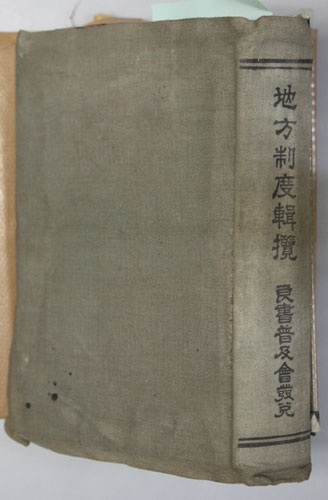 地方制度輯攬
良書普及會發兌